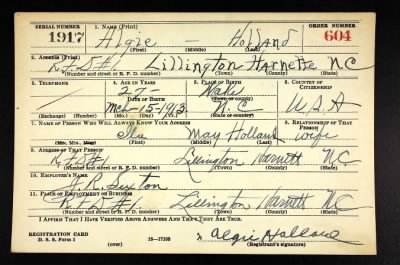 SERIAL NUMBER 1. NAME (Print) ORDER NUMBER
1917 Algie — Holland 604
(First) (Middle) (Last)
2. ADDRESS (Print)
R F D #1. Lillington Harnette N C
(Number and street or R. F. D. number) (Town) (County) (State)
3. TELEPHONE 4. AGE IN YEARS 5. PLACE OF BIRTH 6. COUNTRY OF CITIZENSHIP
27- Wake
DATE OF BIRTH (Town or county)
Mch-15-1913 N.C. U.S.A
(Exchange) (Number) (Mo.) (Day) (Yr.) (State or country)
7. NAME OF PERSON WHO WILL ALWAYS KNOW YOUR ADDRESS 8. RELATIONSHIP OF THAT PERSON
Ila May Holland wife
(Mr., Mrs., Miss) (First) (Middle) (Last)
9. ADDRESS OF THAT PERSON
R F D #1 Lillington Harnett NC
(Number and street or R. F. D. number) (Town) (County) (State)
10. EMPLOYER'S NAME
Sexton
11. PLACE OF EMPLOYMENT OR BUSINESS
R F D #1. Lillington Harnett NC
(Number and street or R. F. D. number) (Town) (County) (State)
I AFFIRM THAT I HAVE VERIFIED ABOVE ANSWERS AND THAT THEY ARE TRUE.
REGISTRATION CARD x Algie Holland
D. S. S. Form 1 (over) 16—17105 (Registrant's signature)